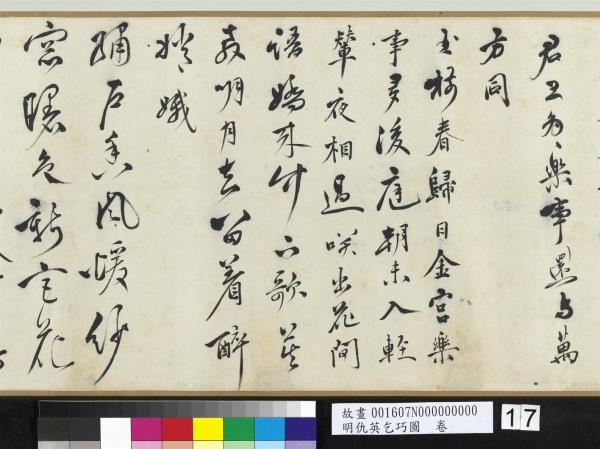 君王多樂事還与萬
方同
玉樹春歸日金宮樂
事多後庭朝未入輕
輦夜相過咲出花間
語嬌来竹下歌莫
教明月去留着醉
嫦娥
繡戶香風暖紗
窓曙色新宮花
故畫 001607N000000000
明仇英乞巧圖 卷
17